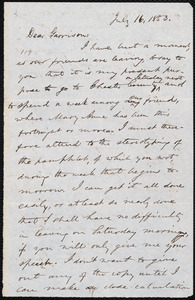 July 16, 1853.
Dear Garrison,
I have but a moment
as our friends are leaving to say to
you that it is my present pur-
pose to go to Chester county on
Saturday next
spend a week among friends,
where Mary Anne has this
fortnight or more. I must there-
fore attend to the stereotyping of
the pamphlet, of which you wrote,
during the week that begins to-
morrow. I can get it all done
easily, or at least so nearly done
that I shall have no difficulty
in leaving on Saturday morning,
if you will only give me your
speech. I don't want to give
out any of the copy until I
can make a close calculation